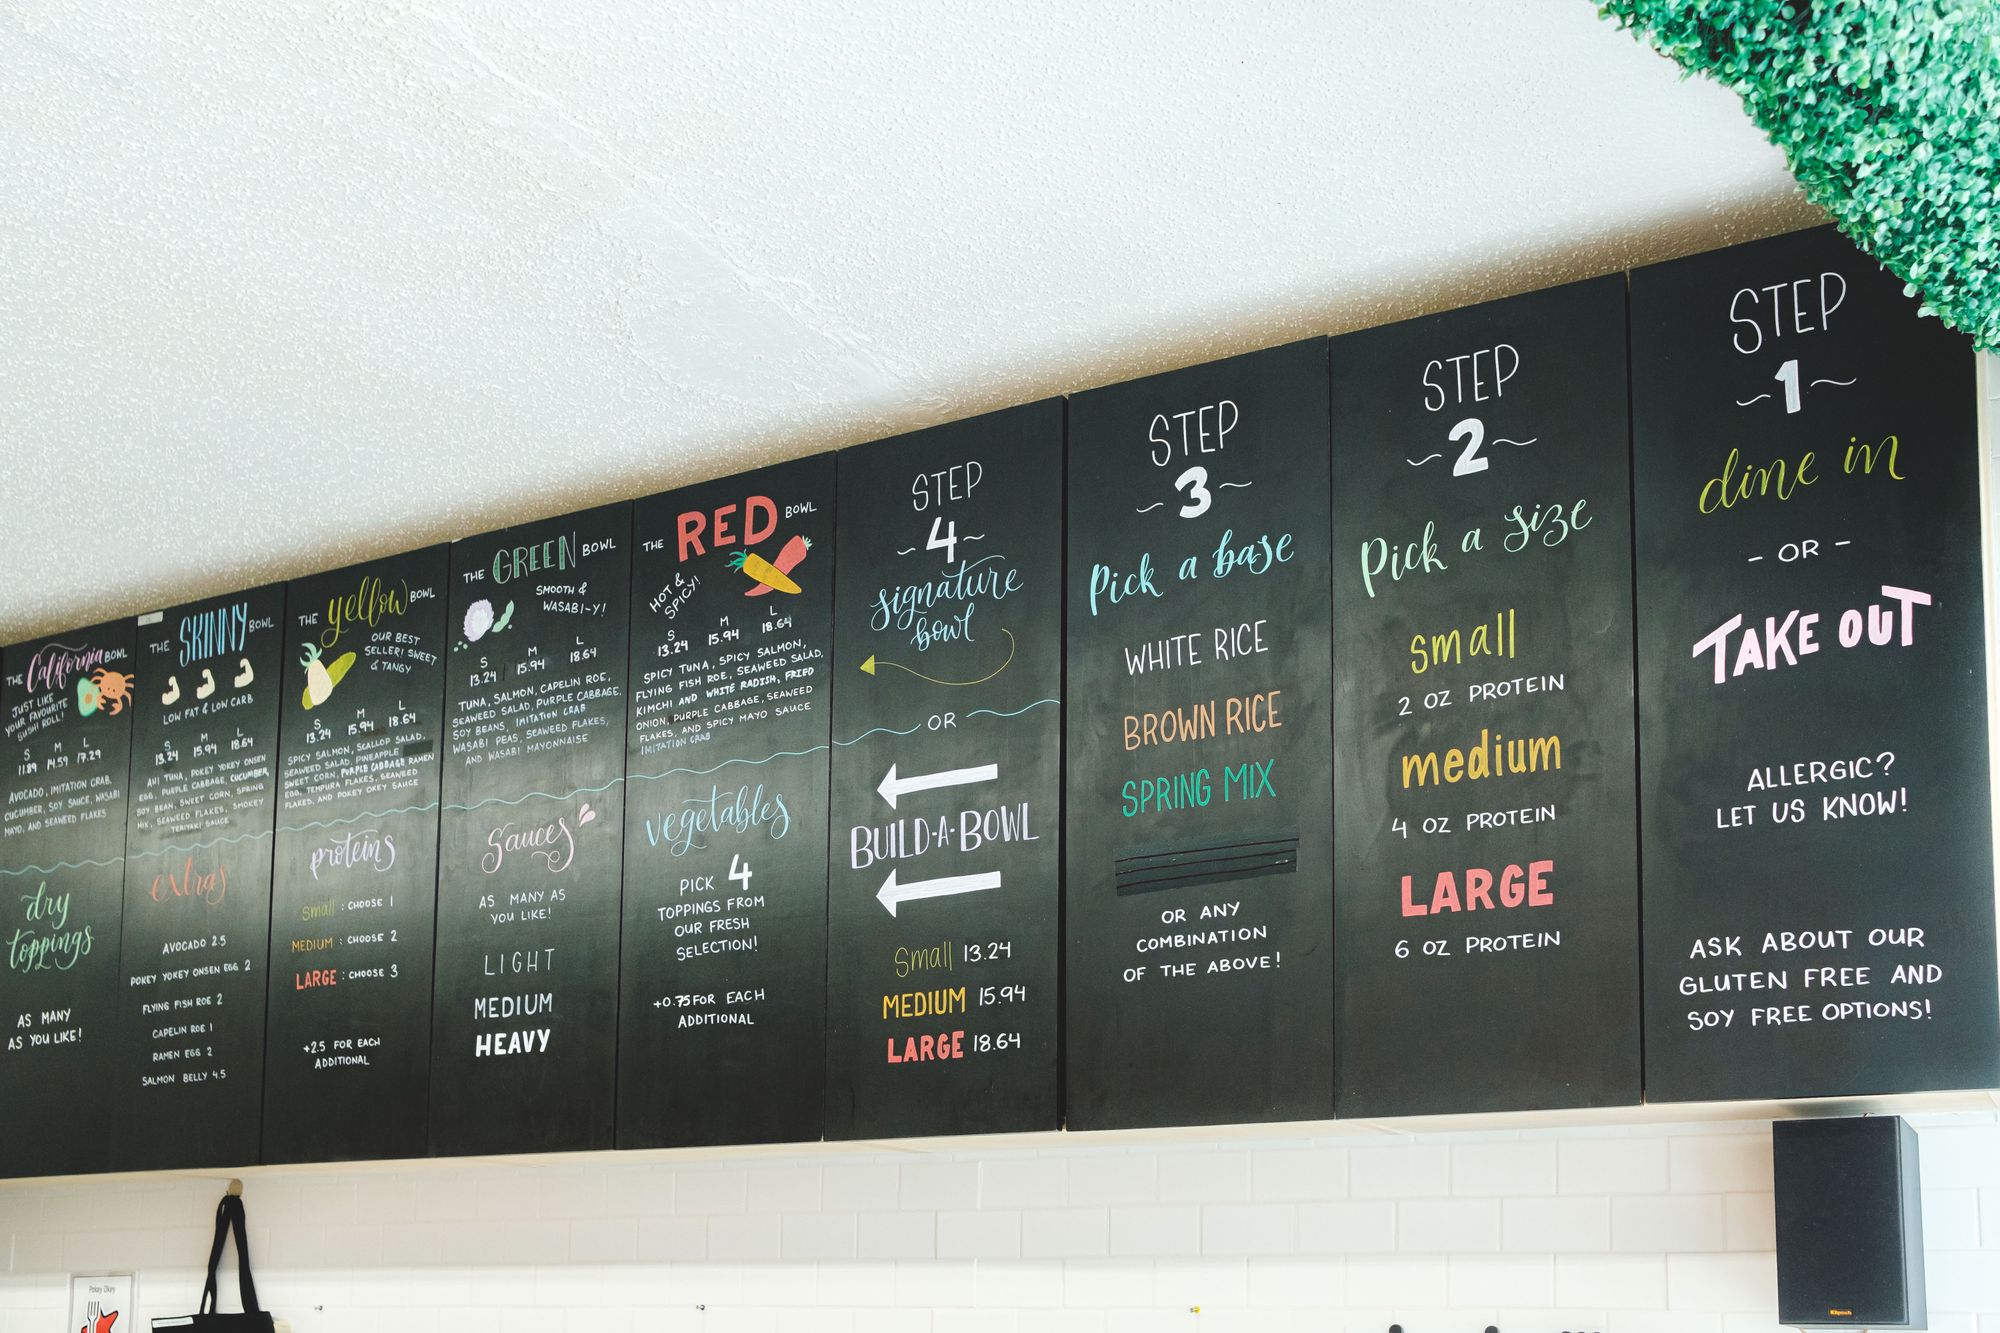 THE California BOWL
JUST LIKE
YOUR FAVOURITE
SUSHI ROLL!
S M L
11.89 14.59 17.29
AVOCADO, IMITATION CRAB,
CUCUMBER, SOY SAUCE, WASABI
MAYO, AND SEAWEED FLAKES
dry
toppings
AS MANY
AS YOU LIKE!
THE SKINNY BOWL
LOW FAT & LOW CARB
S M L
13.24 15.94 18.64
AHI TUNA, POKEY YOKEY ONSEN
EGG, PURPLE CABBAGE, CUCUMBER,
SOY BEAN, SWEET CORN, SPRING
MIX, SEAWEED FLAKES, SMOKEY
TERIYAKI SAUCE
extras
AVOCADO 2.5
POKEY YOKEY ONSEN EGG 2
FLYING FISH ROE 2
CAPELIN ROE 1
RAMEN EGG 2
SALMON BELLY 4.5
THE yellow BOWL
OUR BEST
SELLER! SWEET
& TANGY
S M L
13.24 15.94 18.64
SPICY SALMON, SCALLOP SALAD,
SEAWEED SALAD, PINEAPPLE
SWEET CORN, PURPLE CABBAGE RAMEN
EGG, TEMPURA FLAKES, SEAWEED
FLAKES, AND POKEY OKEY SAUCE
proteins
small : CHOOSE 1
MEDIUM : CHOOSE 2
LARGE : CHOOSE 3
+2.5 FOR EACH
ADDITIONAL
THE GREEN BOWL
SMOOTH &
WASABI-Y!
S M L
13.24 15.94 18.64
TUNA, SALMON, CAPELIN ROE,
SEAWEED SALAD, PURPLE CABBAGE,
SOY BEANS, IMITATION CRAB
WASABI PEAS, SEAWEED FLAKES,
AND WASABI MAYONNAISE
Sauces
AS MANY AS
YOU LIKE!
LIGHT
MEDIUM
HEAVY
THE RED BOWL
HOT &
SPICY!
S M L
13.24 15.94 18.64
SPICY TUNA, SPICY SALMON,
FLYING FISH ROE, SEAWEED SALAD,
KIMCHI AND WHITE RADISH, FRIED
ONION, PURPLE CABBAGE, SEAWEED
FLAKES, AND SPICY MAYO SAUCE
IMITATION CRAB
vegetables
PICK 4
TOPPINGS FROM
OUR FRESH
SELECTION!
+0.75 FOR EACH
ADDITIONAL
STEP
~4~
signature
bowl
OR
BUILD-A-BOWL
Small 13.24
MEDIUM 15.94
LARGE 18.64
STEP
~3~
Pick a base
WHITE RICE
BROWN RICE
SPRING MIX
OR ANY
COMBINATION
OF THE ABOVE!
STEP
~2~
Pick a size
small
2 OZ PROTEIN
medium
4 OZ PROTEIN
LARGE
6 OZ PROTEIN
STEP
~1~
dine in
- OR -
TAKE OUT
ALLERGIC?
LET US KNOW!
ASK ABOUT OUR
GLUTEN FREE AND
SOY FREE OPTIONS!
Pokey Okey
Klipsch